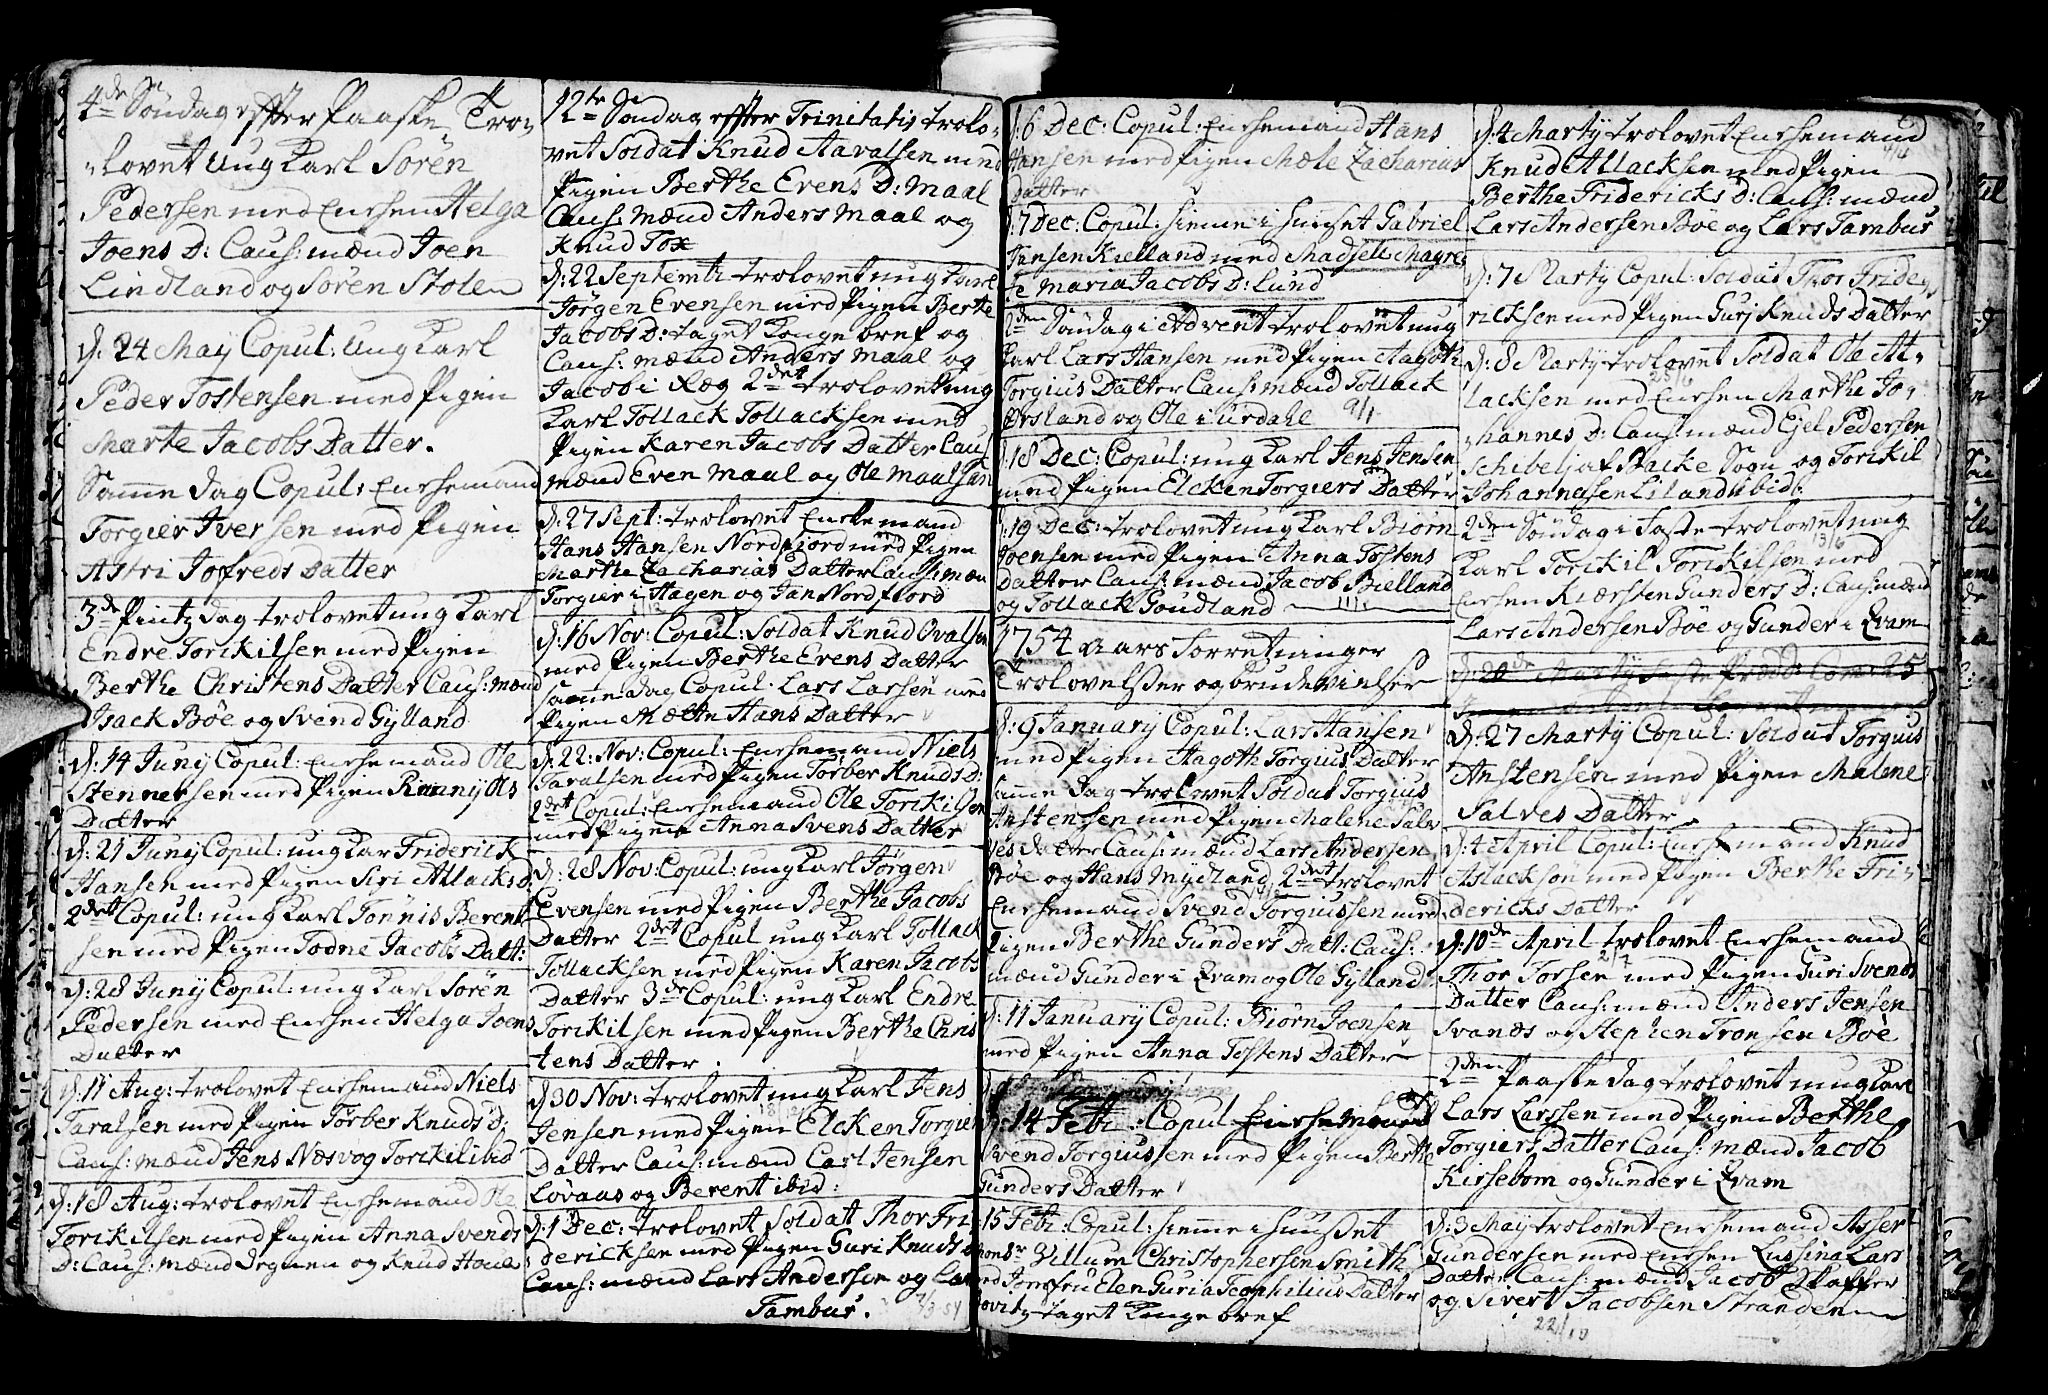 4de Søndag effter Paaske Tro-
lovet Ung Karl Sören
Pedersen med Enchen Helga
Joens D: Caus: mænd Joen
Lindland og Sören Stolen
D: 24 May Copul: Ung Karl
Peder Tostensen med Pigen
Marte Jacobs Datter.
Samme dag Copul: Enchemand
Torgier Iversen med Pigen
Astri Jofreds Datter
3de Pintzdag trolovet ung Karl
Endre Torkilsen med Pigen
Berthe Christens Datter Caus: mænd
Isack Böe og Svend Gylland
D: 14 Juny Copul: Enchemand Ole
Stennersen med Pigen Rönny Ols
Datter
D: 21 Juny Copul: ung Kar Friderick
Hansen med Pigen Siri Atlacks D:
2det Copul: ung Karl Tönnis Berent
sen med Pigen Todne Jacobs Datt:
D: 28 Juny Copul: ung Karl Sören
Pedersen med Enchen Helga Joens
Datter
D: 11 Aug: trolovet Enchemand Niels
Taralsen med Pigen Törber Knuds D:
Caus: mænd Jens Næsvog Torkil ibid
D: 18 Aug: trolovet Enchemand Ole
Torkilsen med Pigen Anna Svends
D: Caus: mænd Degnen og Knud Houe
12te Søndag effter Trinitatis trolo-
vet Soldat Knud Aavalsen med
Pigen Berthe Evens D: Maal
Caus: Mænd Anders Maal og
Knud Fox
D: 22 Septembr trolovet ung Karl
Jörgen Evensen med Pigen Berthe
Jacobs D: taget Konge bref og
Caus: mænd Anders Maal og
Jacob i Ræg 2det trolovet ung
Karl Tollack Tollacksen med
Pigen Karen Jacobs Datter Caus
mænd Even Maal og Ole Maal
D: 27 Sept: trolovet Enchemand
Hans Hansen Nordfiord med Pigen
Marthe Zacharias Datter Caus: mæn
Torgier i Hagen og Jan Nordfiord
D: 16 Nov: Copul: Soldat Knud Ovalsen
med Pigen Berthe Evens Datter
samme dag Copul. Lars Larsen med
Pigen Mætte Hans Datter
D: 22: Nov: Copul: Enchemand Niels
Taralsen med Pigen Törber Knuds D:
2det Copul: Enchemand Ole Torkilsen
med Pigen Anna Svens Datter
D: 28 Nov: Copul: ung Karl Jörgen
Evensen med Pigen Berthe Jacobs
Datter 2det Copul ung Karl Tollack
Tollacksen med Pigen Karen Jacobs
Datter 3de Copul: ung Karl Endre
Torkilsen med Pigen Berthe Chris
tens Datter
D 30 Nov: trolovet ung Karl Jens
Jensen med Pigen Elcken Torgiers
Datter Caus: mænd Carl Jensen
Lövaas og Berent ibid:
D: 1 Dec: trolovet Soldat Thor Fri
dericksen med Pigen Guri Knuds D
Caus: mænd Lars Andersen og Lars
Tambur. 7/3 54
D: 6 Dec: Copul: Enchemand Hans
Hansen med Pigen Mæte Zacharias
datter
D: 7 Dec: Copul: hiemme i huuset Gabriel
Jansen Kielland med Madselle Magre
te Maria Jacobs D: Lund
2den Søndag i Advent trolovet ung
Karl Lars Hansen med Pigen Aagoth
Torgius Datter Caus: mænd Tollack
Ørsland og Ole i Urdahl 9/1
D: 18 Dec: Copul: ung Karl Jens Jensen
med Pigen Elcken Torgiers Datter
D: 19 Dec: trolovet ung Karl Biörn
Joensen med Pigen Anna Tostens
Datter Caus: mænd Jacob Bielland
og Tollack Goudland 11/1
1754 Aars Forretninger
Trolovelser og brudevielser
D: 9 January Copul: Lars Hansen
med Pigen Hagoth Torgius Datter
samme dag trolovet Soldat Torgius
Anstensen med Pigen Malene Sal
ves datter Caus: mænd Lars Andersen
Böe og Hans Mydland 2det trolovet
Enchemand Svend Torgiussen med
Pigen Berthe Gunders Datt: Caus:
mænd Gunder i Qvam og Ole Gylland
D: 11 January Copul: Biörn Joensen
med Pigen Anna Tostens Datter
D: 14 Febr: Copul Enchemand
Svend Torgiussen med Pigen Berthe
Gunders Datter
15 Febr: Copul: hiemme i huuset
Monsr Villum Christophersen Smith
med Jomfru Elen Guria Teophilius Datter
taget Konge bref
D: 4 Marty trolovet Enchemand
Knud Atlacksen med Pigen
Berthe Fridericks D: Caus: mænd
Lars Andersen Böe og Lars Tambur
D: 7 Marty Copul: Soldat Thor Fride-
ricksen med Pigen Guri Knuds Datter
D: 8 Marty trolovet Soldat Ole At-
lacksen med Enchen Marthe Jo-
hannes D: Caus: mænd Ejel Pedersen
Schibeli af Backe Sogn og Torkil
Johannesen Liland ibid:
2den Søndag i Faste trolovet ung
13/6
Karl Torkil Torkilsen med
Enchen Kiersten Gunders D: Caus: mænd
Lars Andersen Böe og Gunder i Qvam
D: 20de Marty
D: 27 Marty Copul: Soldat Torgius
Anstensen med Pigen Malene
Salves Datter
D: 4 April Copul: Enchemand Knud
Aslacksen med Pigen Berthe Fri-
dericks Datter
D: 10de April trolovet Enchemand
Thor Torsen med Pigen Guri Svends
Datter Caus: mænd Anders Jensen
Svanæs og Stephen Tronsen Böe
2den Paaske dag trolovet ung Karl
Lars Larssen med Pigen Berthe
Torgiers Datter Caus: mænd Jacob
Kirsebom og Gunder i Qvam
D: 3 May trolovet Enchemand Asser
Gundersen med Enchen Lussina Lars
Datter Caus: mænd Jacob Skaffer
og Sivert Jacobsen Stranden
22/10